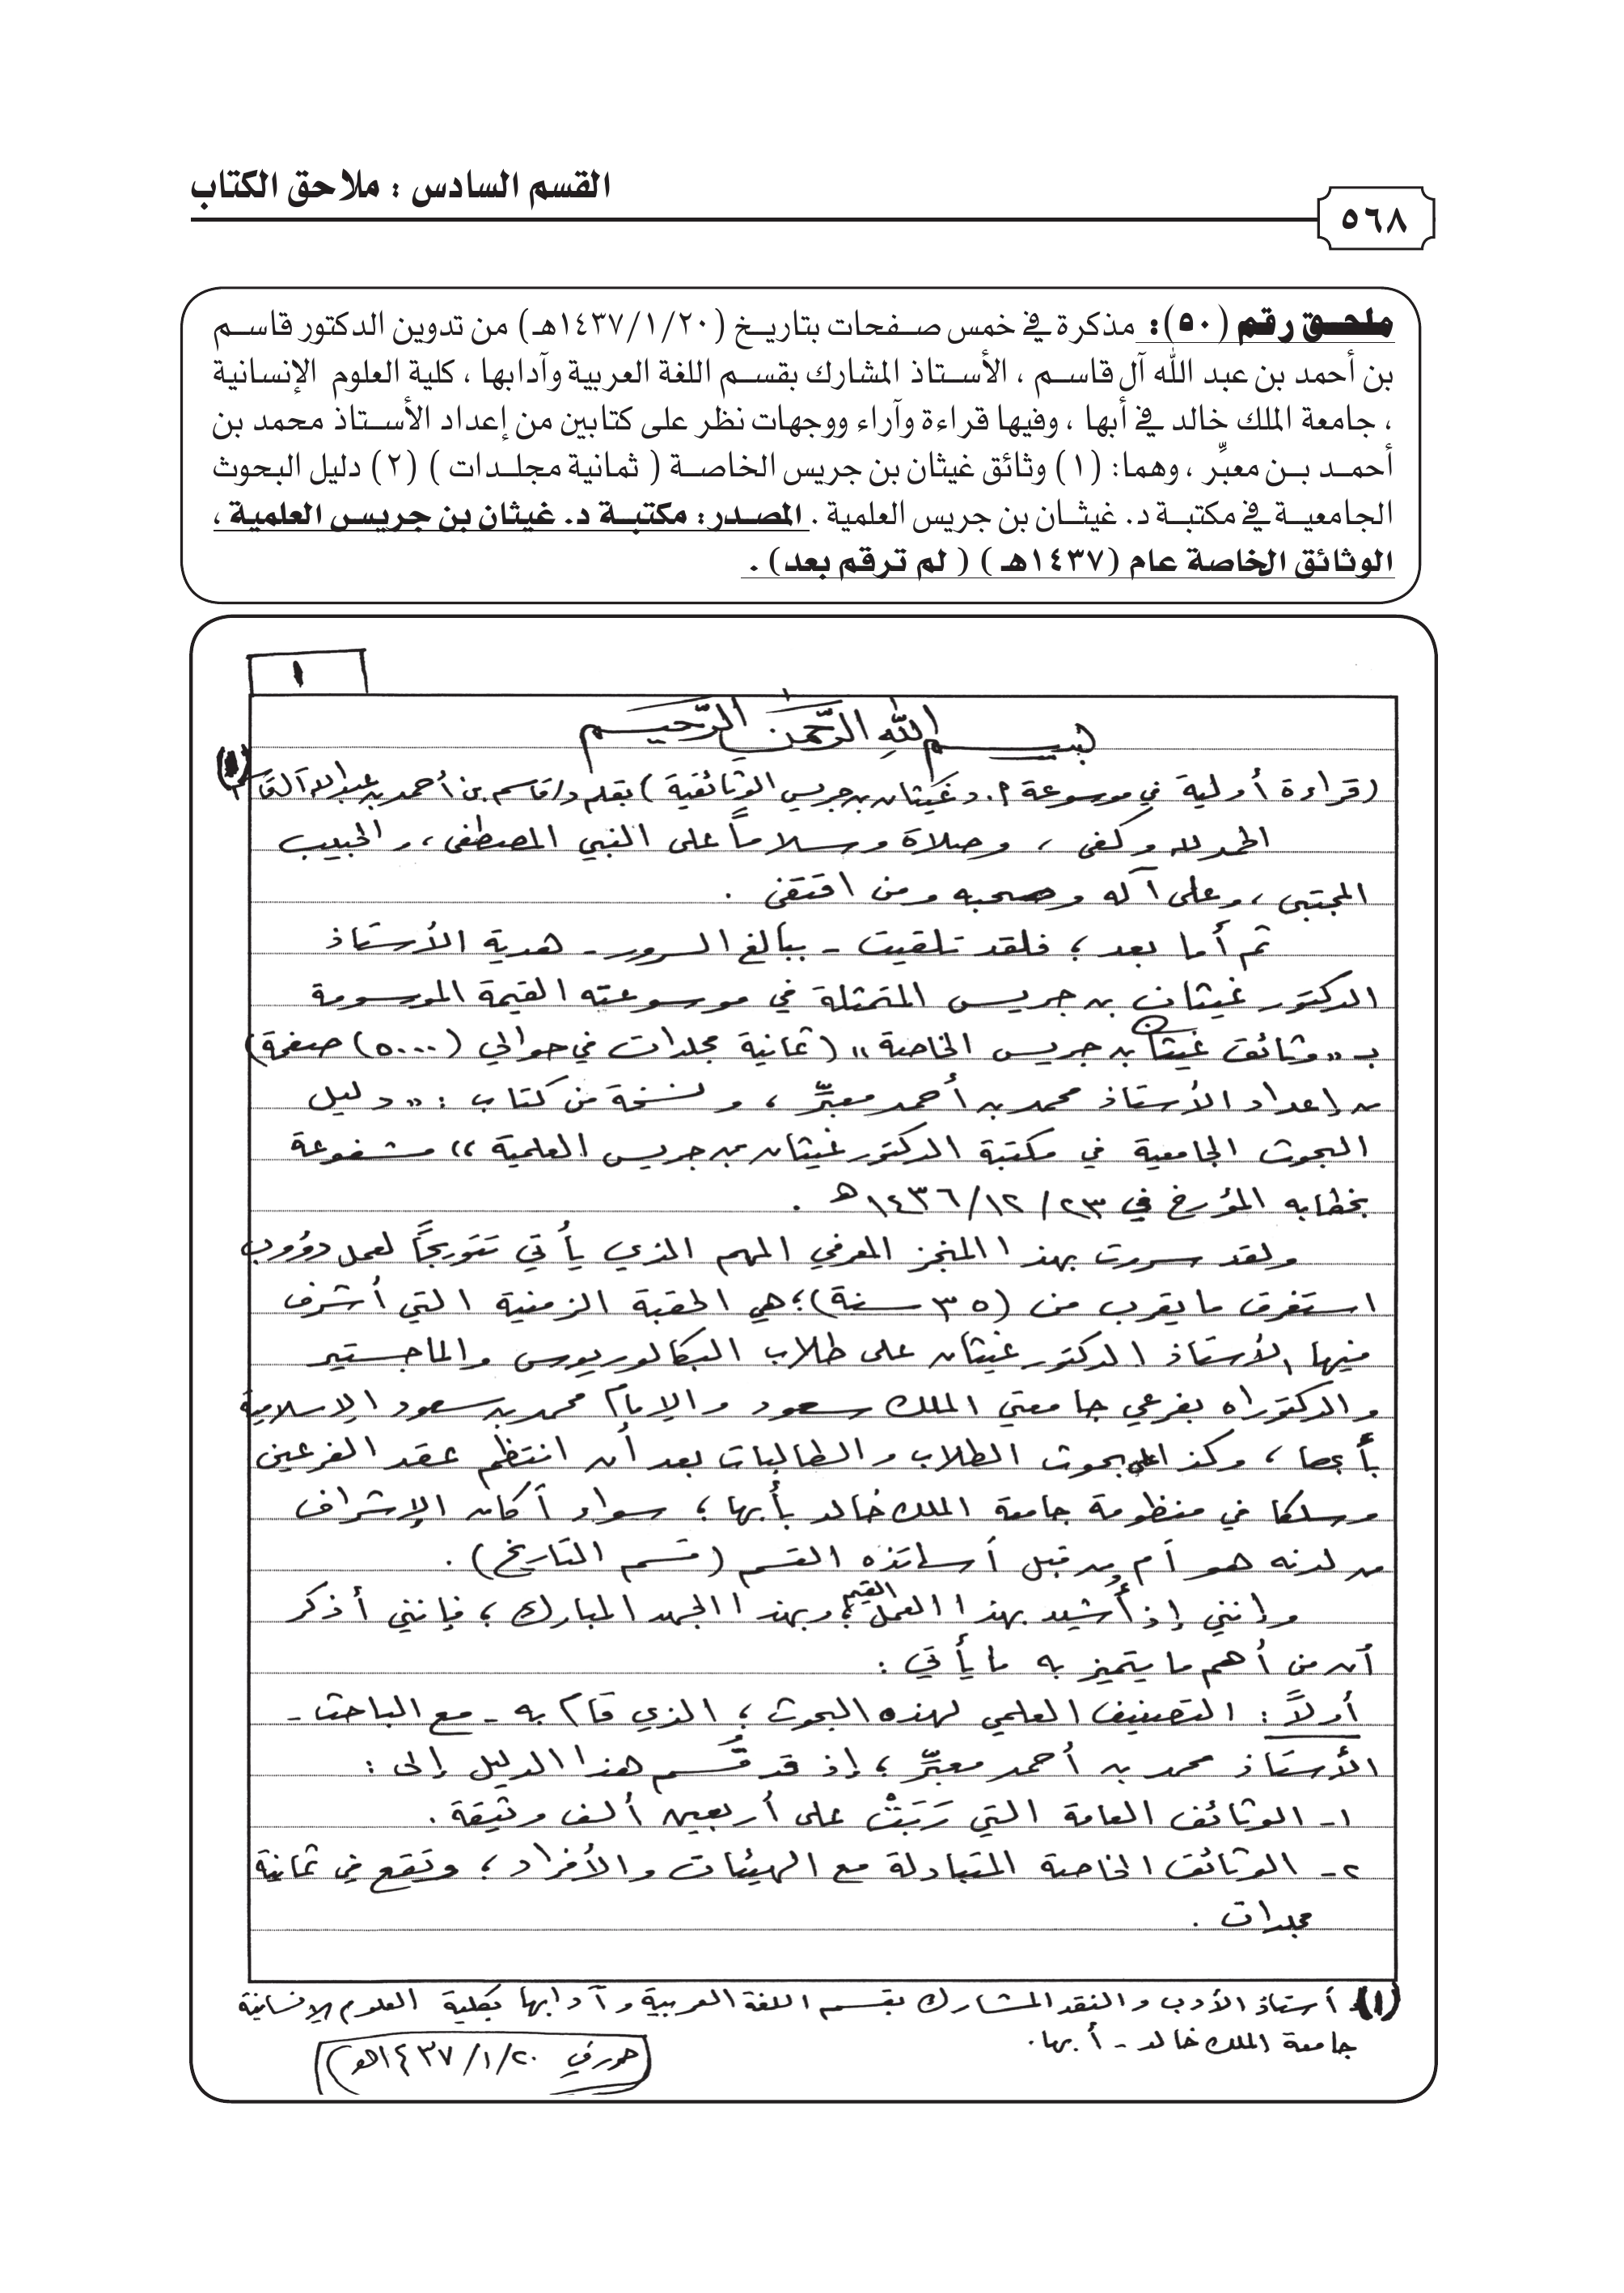 القسم السادس : ملاحق الكتاب
٥٦٨
ملحق رقم (٥٠): مذكرة في خمس صفحات بتاريخ (١٤٣٧/١/٢٠هـ) من تدوين الدكتور قاسم
بن أحمد بن عبد الله آل قاسم ، الأستاذ المشارك بقسم اللغة العربية وآدابها ، كلية العلوم الإنسانية
، جامعة الملك خالد في أبها ، وفيها قراءة وآراء ووجهات نظر على كتابين من إعداد الأستاذ محمد بن
أحمد بن معبِّر ، وهما: (١) وثائق غيثان بن جريس الخاصة ( ثمانية مجلدات ) (٢) دليل البحوث
الجامعية في مكتبة د. غيثان بن جريس العلمية . المصدر: مكتبة د. غيثان بن جريس العلمية ،
الوثائق الخاصة عام (١٤٣٧هـ) ( لم ترقم بعد) .
١
بسم اللهِ الرَّحمن الرَّحيم
(قراءة أولية في موسوعة أ.د غيثان بن جريس الوثائقية) بقلم د/قاسم بن أحمد بن عبدالله آل قاسم (١)
الحمد لله وكفى ، وصلاة وسلاماً على النبي المصطفى ، والحبيب
المجتبى ، وعلى آله وصحبه ومن اقتفى .
ثم أما بعد ؛ فلقد تلقيت - ببالغ السرور - هدية الأستاذ
الدكتور غيثان بن جريس المتمثلة في موسوعته القيمة الموسومة
بـ «وثائق غيثان بن جريس الخاصة» (ثمانية مجلدات في حوالي (٥٠٠٠) صفحة)
من إعداد الأستاذ محمد بن أحمد معبِّر ، ونسخة من كتاب : «دليل
البحوث الجامعية في مكتبة الدكتور غيثان بن جريس العلمية» مشفوعة
بخطابه المؤرخ في ٢٣/ ١٢/ ١٤٣٦هـ .
ولقد سررت بهذا المنجز المعرفي المهم الذي يأتي تتويجاً لعمل دؤوب
استغرق ما يقرب من (٣٥ سنة)؛ هي الحقبة الزمنية التي أشرف
فيها الأستاذ الدكتور غيثان على طلاب البكالوريوس والماجستير
والدكتوراه بفرعي جامعتي الملك سعود والإمام محمد بن سعود الإسلامية
بأبها ، وكذا على بحوث الطلاب والطالبات بعد أن انتظم عقد الفرعين
وسلكا في منظومة جامعة الملك خالد بأبها ؛ سواء أكان الإشراف
من لدنه هو أم من قبل أساتذه القسم (قسم التاريخ) .
وإنني إذ أُشيد بهذا العمل القيم ؛ وبهذا الجهد المبارك ؛ فإنني أذكر
أن من أهم ما يتميز به ما يأتي :
أولاً : التصنيف العلمي لهذه البحوث ؛ الذي قام به - مع الباحث -
الأستاذ محمد بن أحمد معبِّر ؛ إذ قد قُسم هذا الدليل إلى :
١- الوثائق العامة التي رَبَتْ على أربعين ألف وثيقة .
٢- الوثائق الخاصة المتبادلة مع الهيئات والأفراد ؛ وتقع في ثمانية
مجلدات .
(١) أستاذ الأدب والنقد المشارك بقسم اللغة العربية وآدابها بكلية العلوم الإنسانية
جامعة الملك خالد - أبها .
حرر في ١٤٣٧/١/٢٠هـ